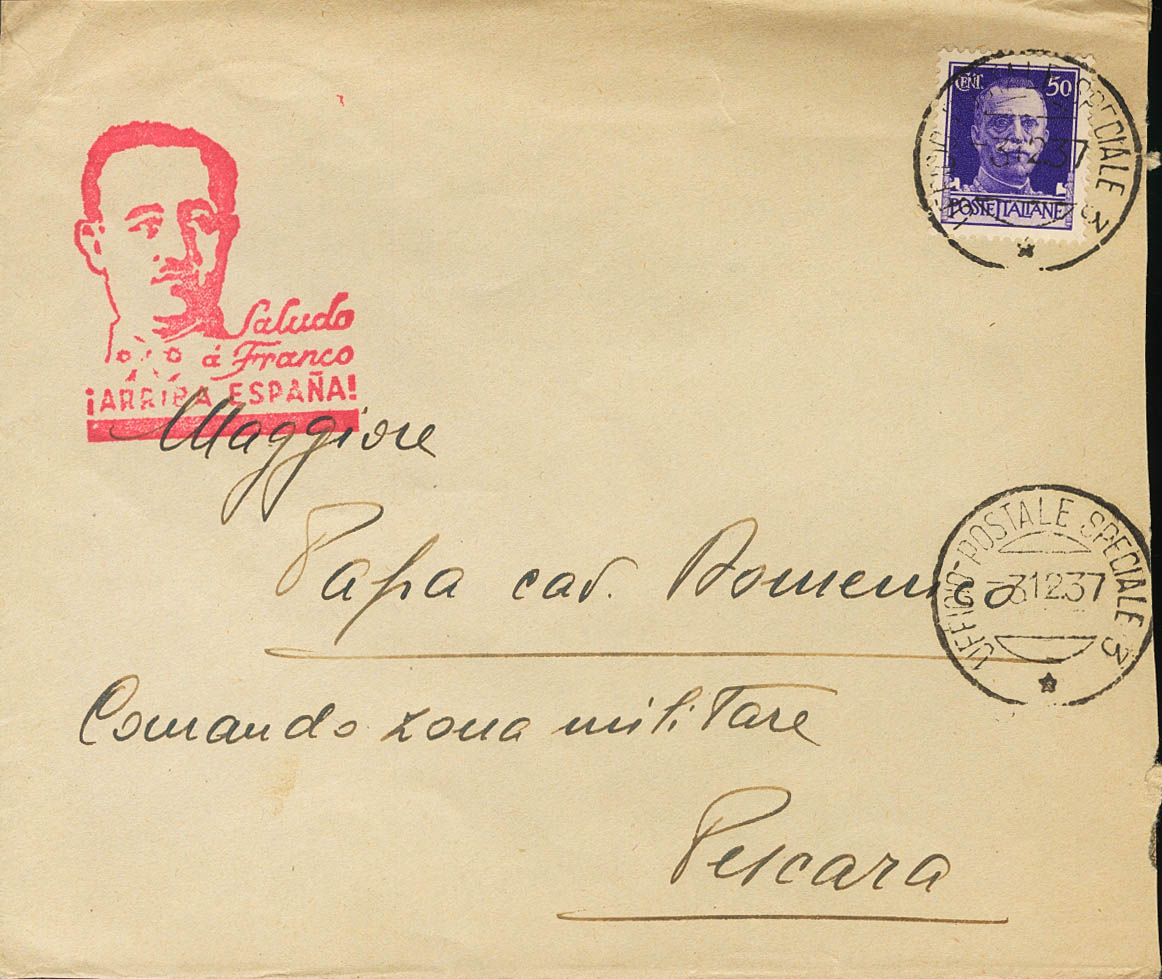 CENT. 50
POSTE ITALIANE
UFFICIO POSTALE SPECIALE 3
-3.12.37
Saludo
á Franco
¡ARRIBA ESPAÑA!
Maggiore
Papa cav. Domenico
UFFICIO-POSTALE SPECIALE 3
-3.12.37
Comando zona militare
Pescara